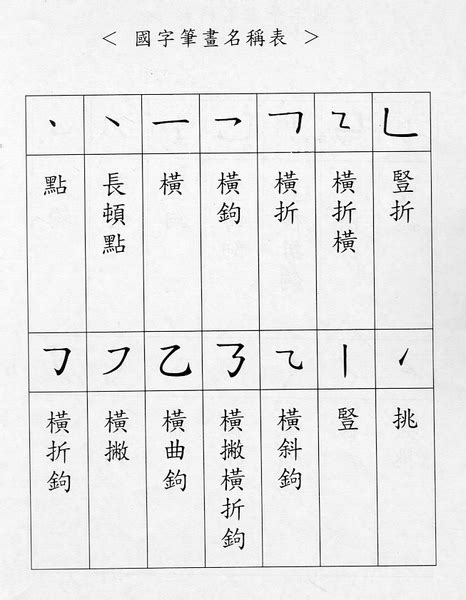 < 國字筆畫名稱表 >
㇔ ㇔ 一 ㇖ ㇕ ㇍ ㇗
點
長頓點
橫
橫鉤
橫折
橫折橫
豎折
㇆ ㇇ 乙 ㇌ ⺄ 丨 ㇀
橫折鉤
橫撇
橫曲鉤
橫撇橫折鉤
橫斜鉤
豎
挑